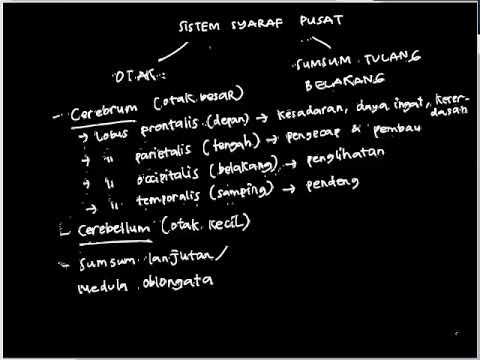 SISTEM SYARAF PUSAT
OTAK
SUMSUM TULANG
BELAKANG
- Cerebrum (otak besar)
→ Lobus prontalis (depan) → kesadaran, daya ingat, kecer-
dasan
→ " parietalis (tengah) → pengecap & pembau
→ " occipitalis (belakang) → penglihatan
→ " temporalis (samping) → pendeng
- Cerebellum (otak kecil)
- sumsum lanjutan/
medula oblongata